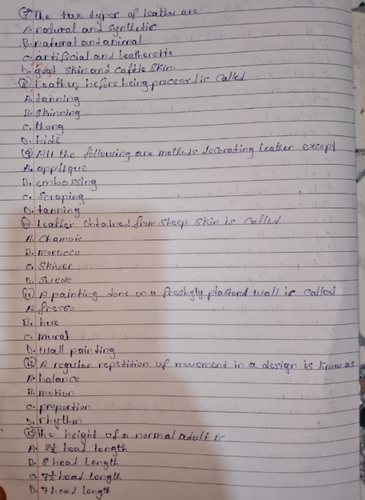 ⑦ The two types of leather are
A. natural and synthetic
B. natural and animal
C. artificial and leatherette
D. goat skin and cattle skin.
⑧ Leather, before being processed is called
A. tanning
B. skinning
C. thong
D. hide
⑨ All the following are methods decorating leather except
A. applique
B. embossing
C. scraping
D. tanning
⑩ Leather obtained from sheep skin is called
A. Chamois
B. morocco
C. Skiver
D. Suede
⑪ A painting done on a freshly plastered wall is called
A. fresco
B. hue
C. mural
D. wall painting
⑫ A regular repetition of movement in a design is known as
A. balance
B. motion
C. proportion
D. rhythm
⑬ The height of a normal adult is
A. 8½ head length
B. 8 head length
C. 7½ head length
D. 7 head length